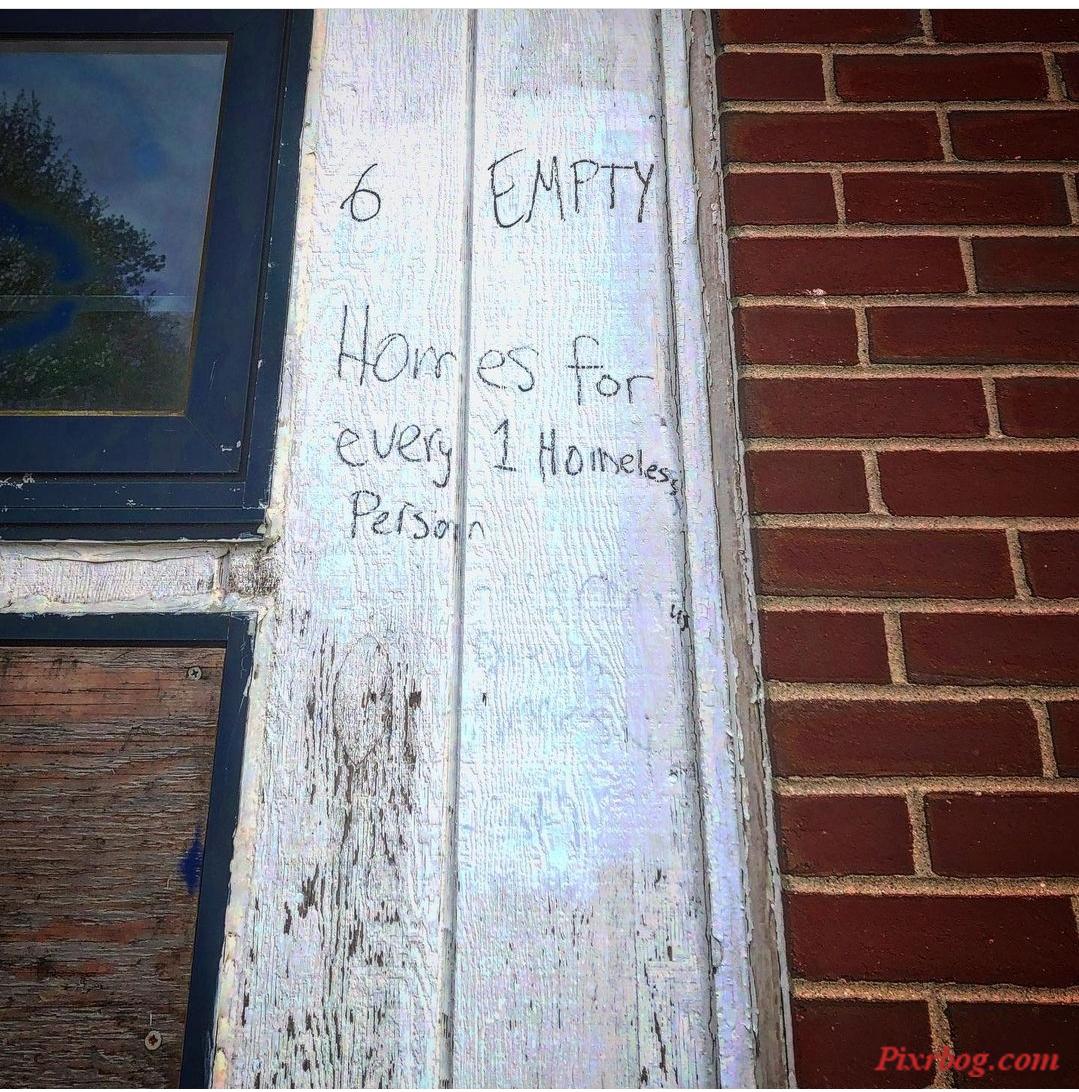 6 EMPTY
Homes for
every 1 Homeless
Person
Pixrbog.com